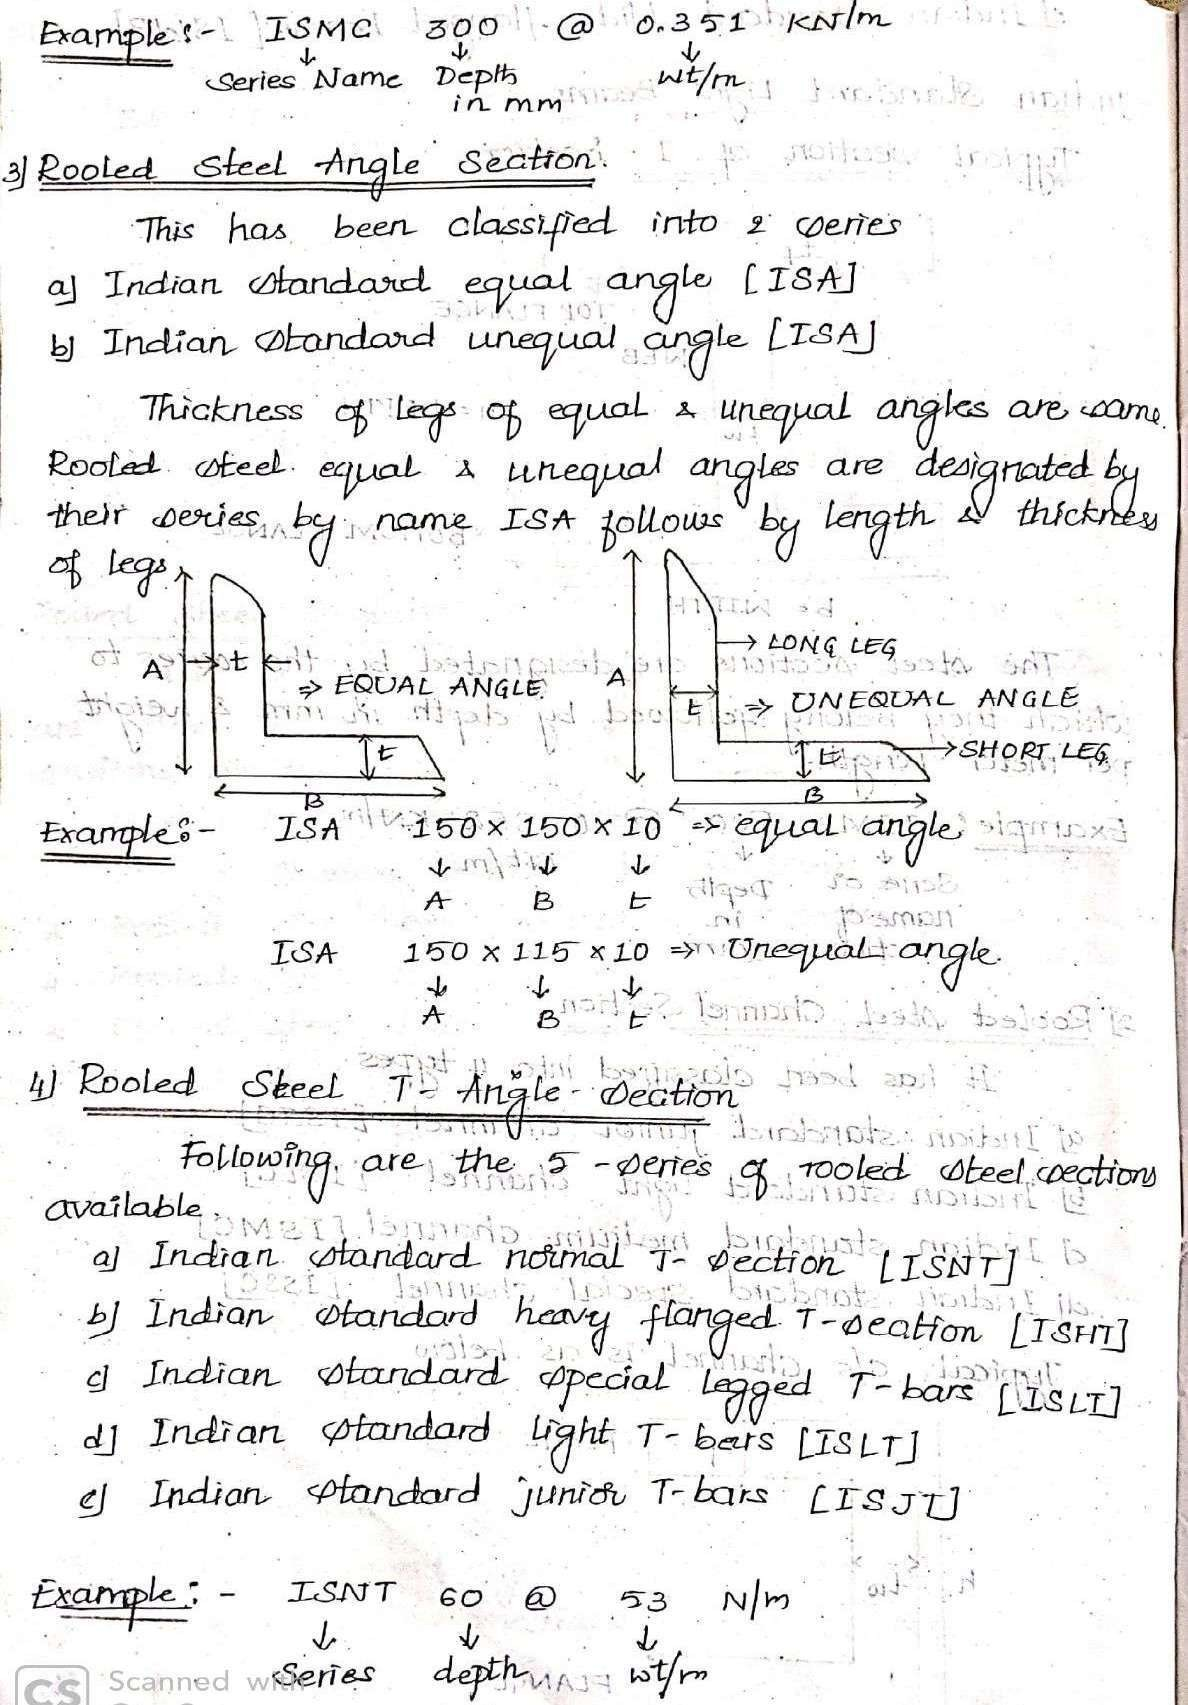 Example :- ISMC 300 @ 0.351 KN/m
↓ ↓ ↓
Series Name Depth wt/m
in mm
3] Rooled Steel Angle Section.
This has been classified into 2 series
a] Indian standard equal angle [ISA]
b] Indian standard unequal angle [ISA]
Thickness of legs of equal & unequal angles are same.
Rooled steel equal & unequal angles are designated by
their series by name ISA follows by length & thickness
of legs.
A t ⇒ EQUAL ANGLE.
t
B
A t → LONG LEG
⇒ UNEQUAL ANGLE
t → SHORT LEG
B
Example :- ISA 150 x 150 x 10 ⇒ equal angle
↓ ↓ ↓
A B t
ISA 150 x 115 x 10 ⇒ Unequal angle.
↓ ↓ ↓
A B t
4] Rooled Steel T- Angle - Section
Following are the 5 - series of rooled steel sections
available.
a] Indian standard normal T- section [ISNT]
b] Indian standard heavy flanged T-section [ISHT]
c] Indian standard special legged T-bars [ISLT]
d] Indian standard light T- bars [ISLT]
e] Indian standard junior T-bars [ISJT]
Example :- ISNT 60 @ 53 N/m
↓ ↓ ↓
Series depth wt/m
CS Scanned with